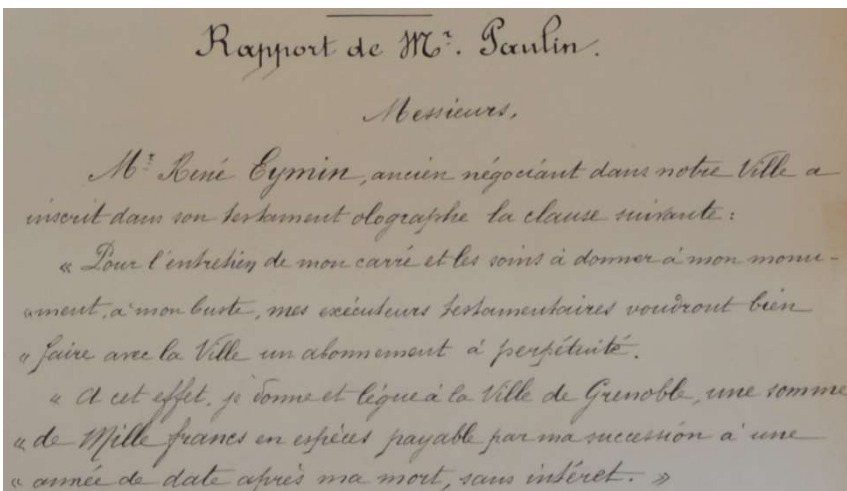 Rapport de Mr. Paulin.
Messieurs,
Mr René Eymin, ancien négociant dans notre Ville a
inscrit dans son testament olographe la clause suivante :
« Pour l'entretien de mon carré et les soins à donner à mon monu-
« ment, à mon buste, mes exécuteurs testamentaires voudront bien
« faire avec la Ville un abonnement à perpétuité.
« A cet effet, je donne et lègue à la Ville de Grenoble, une somme
« de Mille francs en espèces payable par ma succession à une
« année de date après ma mort, sans intéret. »